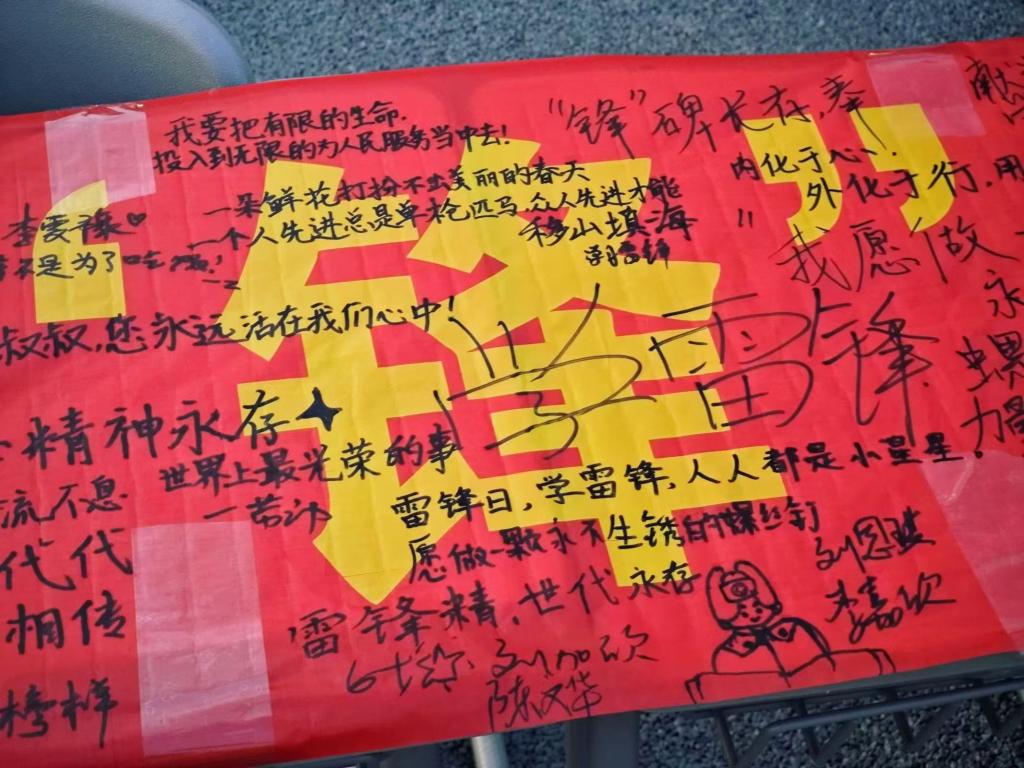 我要把有限的生命.
投入到无限的为人民服务当中去!
"锋"碑长存,奉
一朵鲜花打扮不出美丽的春天
一个人先进总是单枪匹马,众人先进才能
移山填海
学雷锋
内化于心、
外化于行,用
李雯
不是为了吃饭!
我愿做一
叔叔,您永远活在我们心中!
永
学雷锋
螺
力量
精神永存
世界上最光荣的事
一劳动
流不息
代代
相传
榜样
雷锋日,学雷锋,人人都是小星星。
愿做一颗永不生锈的螺丝钉
雷锋精,世代永存
“锋”